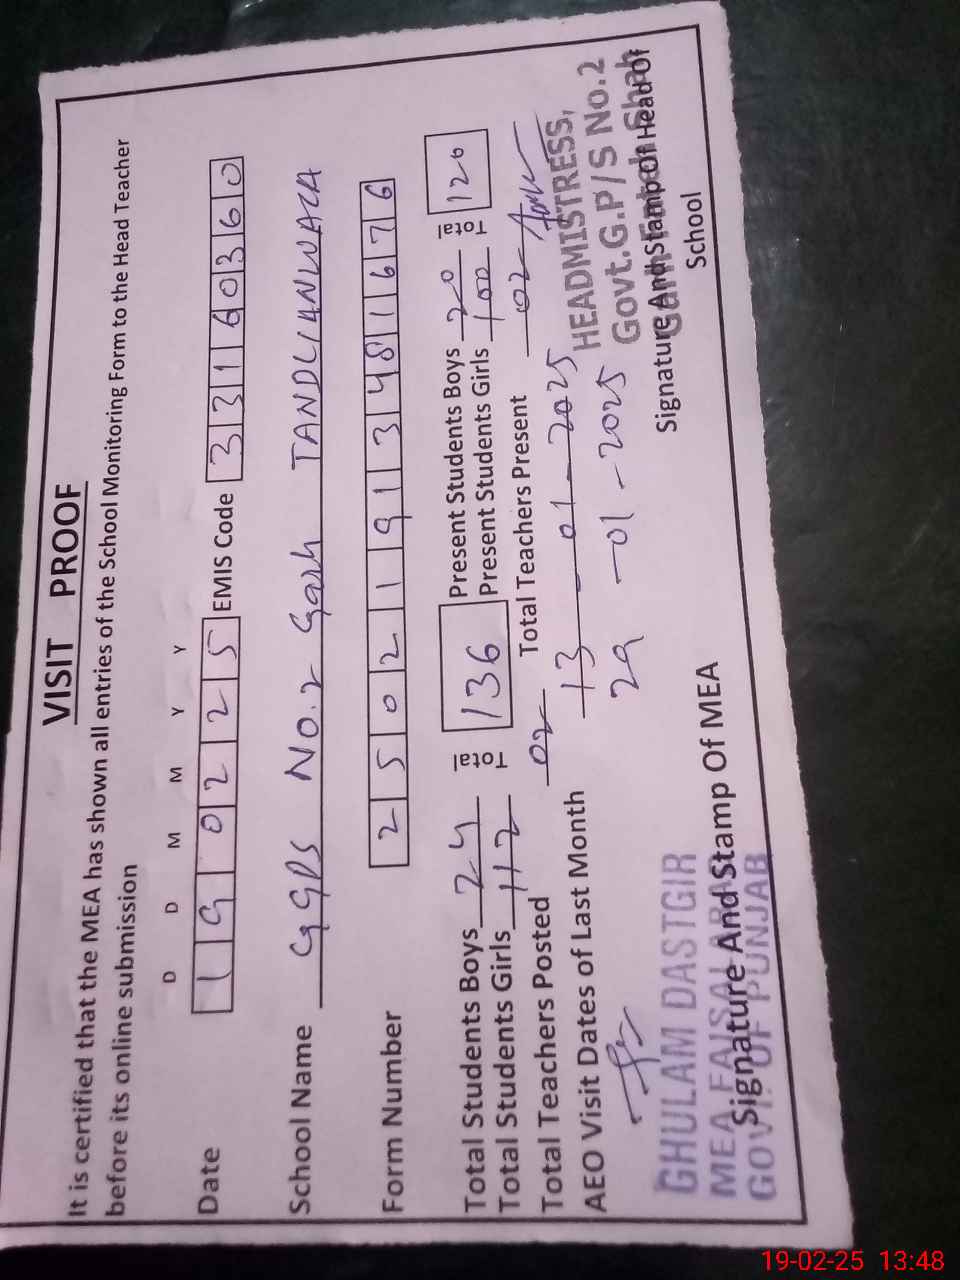 VISIT PROOF
It is certified that the MEA has shown all entries of the School Monitoring Form to the Head Teacher
before its online submission
D D M M Y Y
Date 1 9 0 2 2 5 EMIS Code 3 3 1 6 0 3 6 0
School Name GGPS No. 2 Garh TANDLIANWALA
Form Number 2 5 0 2 1 9 1 3 4 8 1 6 7 6
Total Students Boys 24 Total 136 Present Students Boys 20 Total 120
Total Students Girls 112 Present Students Girls 100
Total Teachers Posted 02 Total Teachers Present 02
AEO Visit Dates of Last Month 13-01-2025
29-01-2025
HEADMISTRESS,
Govt.G.P/S No.2
Garh
Signature And Stamp Of Head Of
School
GHULAM DASTGIR
MEA FAISALABAD
GOVT. OF PUNJAB
Signature And Stamp Of MEA
19-02-25 13:48